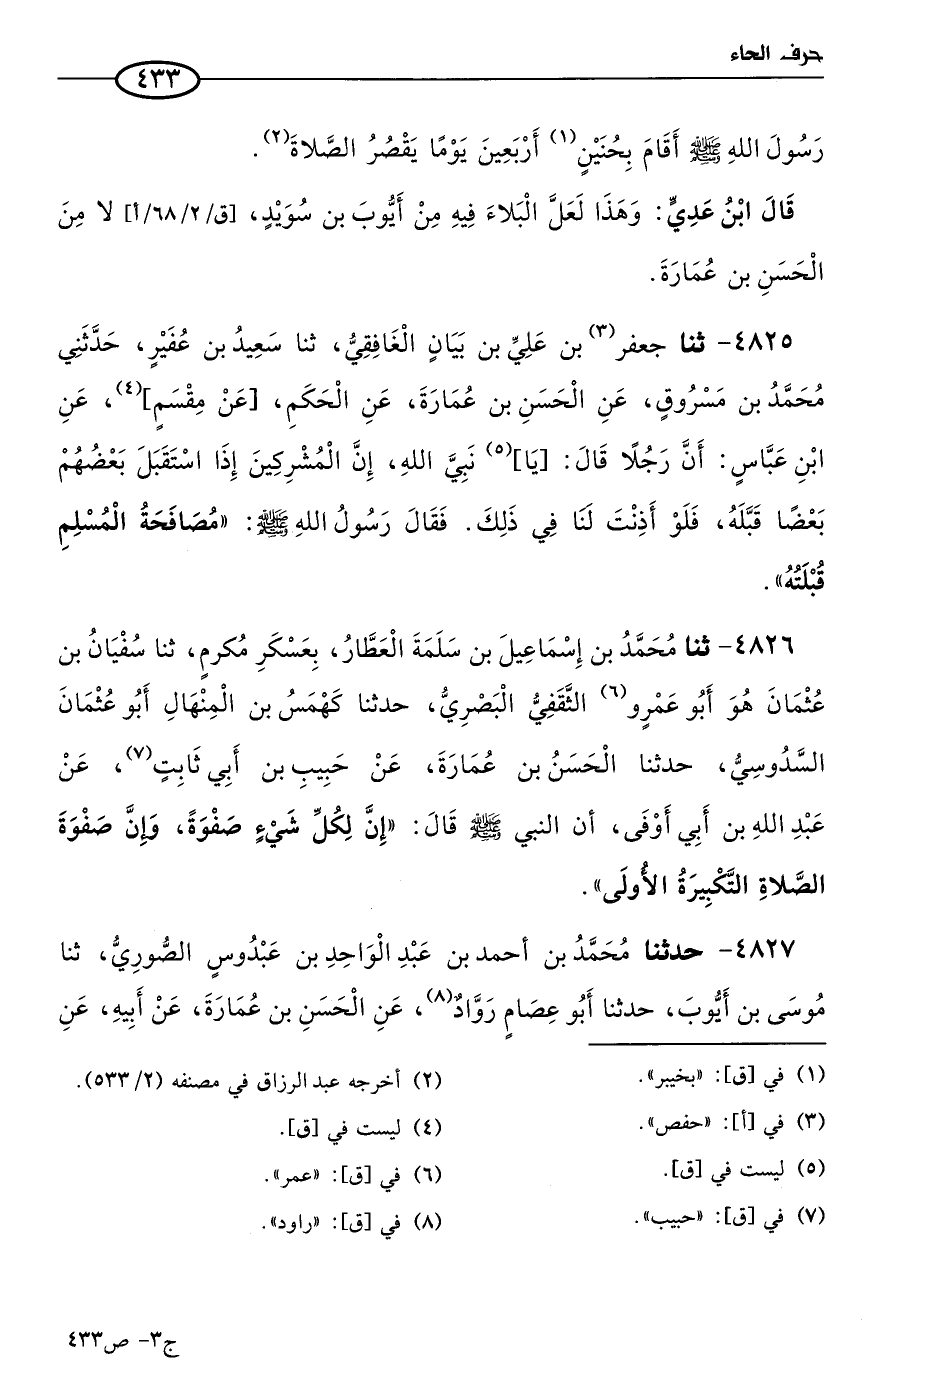 حرف الحاء
٤٣٣
رَسُولَ اللهِ ﷺ أَقَامَ بِحُنَيْنٍ(١) أَرْبَعِينَ يَوْمًا يَقْصُرُ الصَّلاةَ(٢).
قَالَ ابْنُ عَدِيٍّ: وَهَذَا لَعَلَّ الْبَلاءَ فِيهِ مِنْ أَيُّوبَ بن سُوَيْدٍ، [ق/٦٨/٢/أ] لا مِنَ
الْحَسَنِ بن عُمَارَةَ.
٤٨٢٥- ثنا جعفر(٣) بن عَلِيِّ بن بَيَانٍ الْغَافِقِيُّ، ثنا سَعِيدُ بن عُفَيْرٍ، حَدَّثَنِي
مُحَمَّدُ بن مَسْرُوقٍ، عَنِ الْحَسَنِ بن عُمَارَةَ، عَنِ الْحَكَمِ، [عَنْ مِقْسَمٍ](٤)، عَنِ
ابْنِ عَبَّاسٍ: أَنَّ رَجُلًا قَالَ: [يَا](٥) نَبِيَّ اللهِ، إِنَّ الْمُشْرِكِينَ إِذَا اسْتَقَبَلَ بَعْضُهُمْ
بَعْضًا قَبَّلَهُ، فَلَوْ أَذِنْتَ لَنَا فِي ذَلِكَ. فَقَالَ رَسُولُ اللهِ ﷺ: «مُصَافَحَةُ الْمُسْلِمِ
قُبْلَتُهُ».
٤٨٢٦- ثنا مُحَمَّدُ بن إِسْمَاعِيلَ بن سَلَمَةَ الْعَطَّارُ، بِعَسْكَرِ مُكرمٍ، ثنا سُفْيَانُ بن
عُثْمَانَ هُوَ أَبُو عَمْرٍو(٦) الثَّقَفِيُّ الْبَصْرِيُّ، حدثنا كَهْمَسُ بن الْمِنْهَالِ أَبُو عُثْمَانَ
السَّدُوسِيُّ، حدثنا الْحَسَنُ بن عُمَارَةَ، عَنْ حَبِيبِ بن أَبِي ثَابِتٍ(٧)، عَنْ
عَبْدِ اللهِ بن أَبِي أَوْفَى، أن النبي ﷺ قَالَ: «إِنَّ لِكُلِّ شَيْءٍ صَفْوَةً، وَإِنَّ صَفْوَةَ
الصَّلاةِ التَّكْبِيرَةُ الأُولَى».
٤٨٢٧- حدثنا مُحَمَّدُ بن أحمد بن عَبْدِ الْوَاحِدِ بن عَبْدُوسٍ الصُّورِيُّ، ثنا
مُوسَى بن أَيُّوبَ، حدثنا أَبُو عِصَامٍ رَوَّادٌ(٨)، عَنِ الْحَسَنِ بن عُمَارَةَ، عَنْ أَبِيهِ، عَنِ
(١) في [ق]: «بخيبر».
(٢) أخرجه عبد الرزاق في مصنفه (٢/ ٥٣٣).
(٣) في [أ]: «حفص».
(٤) ليست في [ق].
(٥) ليست في [ق].
(٦) في [ق]: «عمر».
(٧) في [ق]: «حبيب».
(٨) في [ق]: «راود».
ج٣- ص٤٣٣